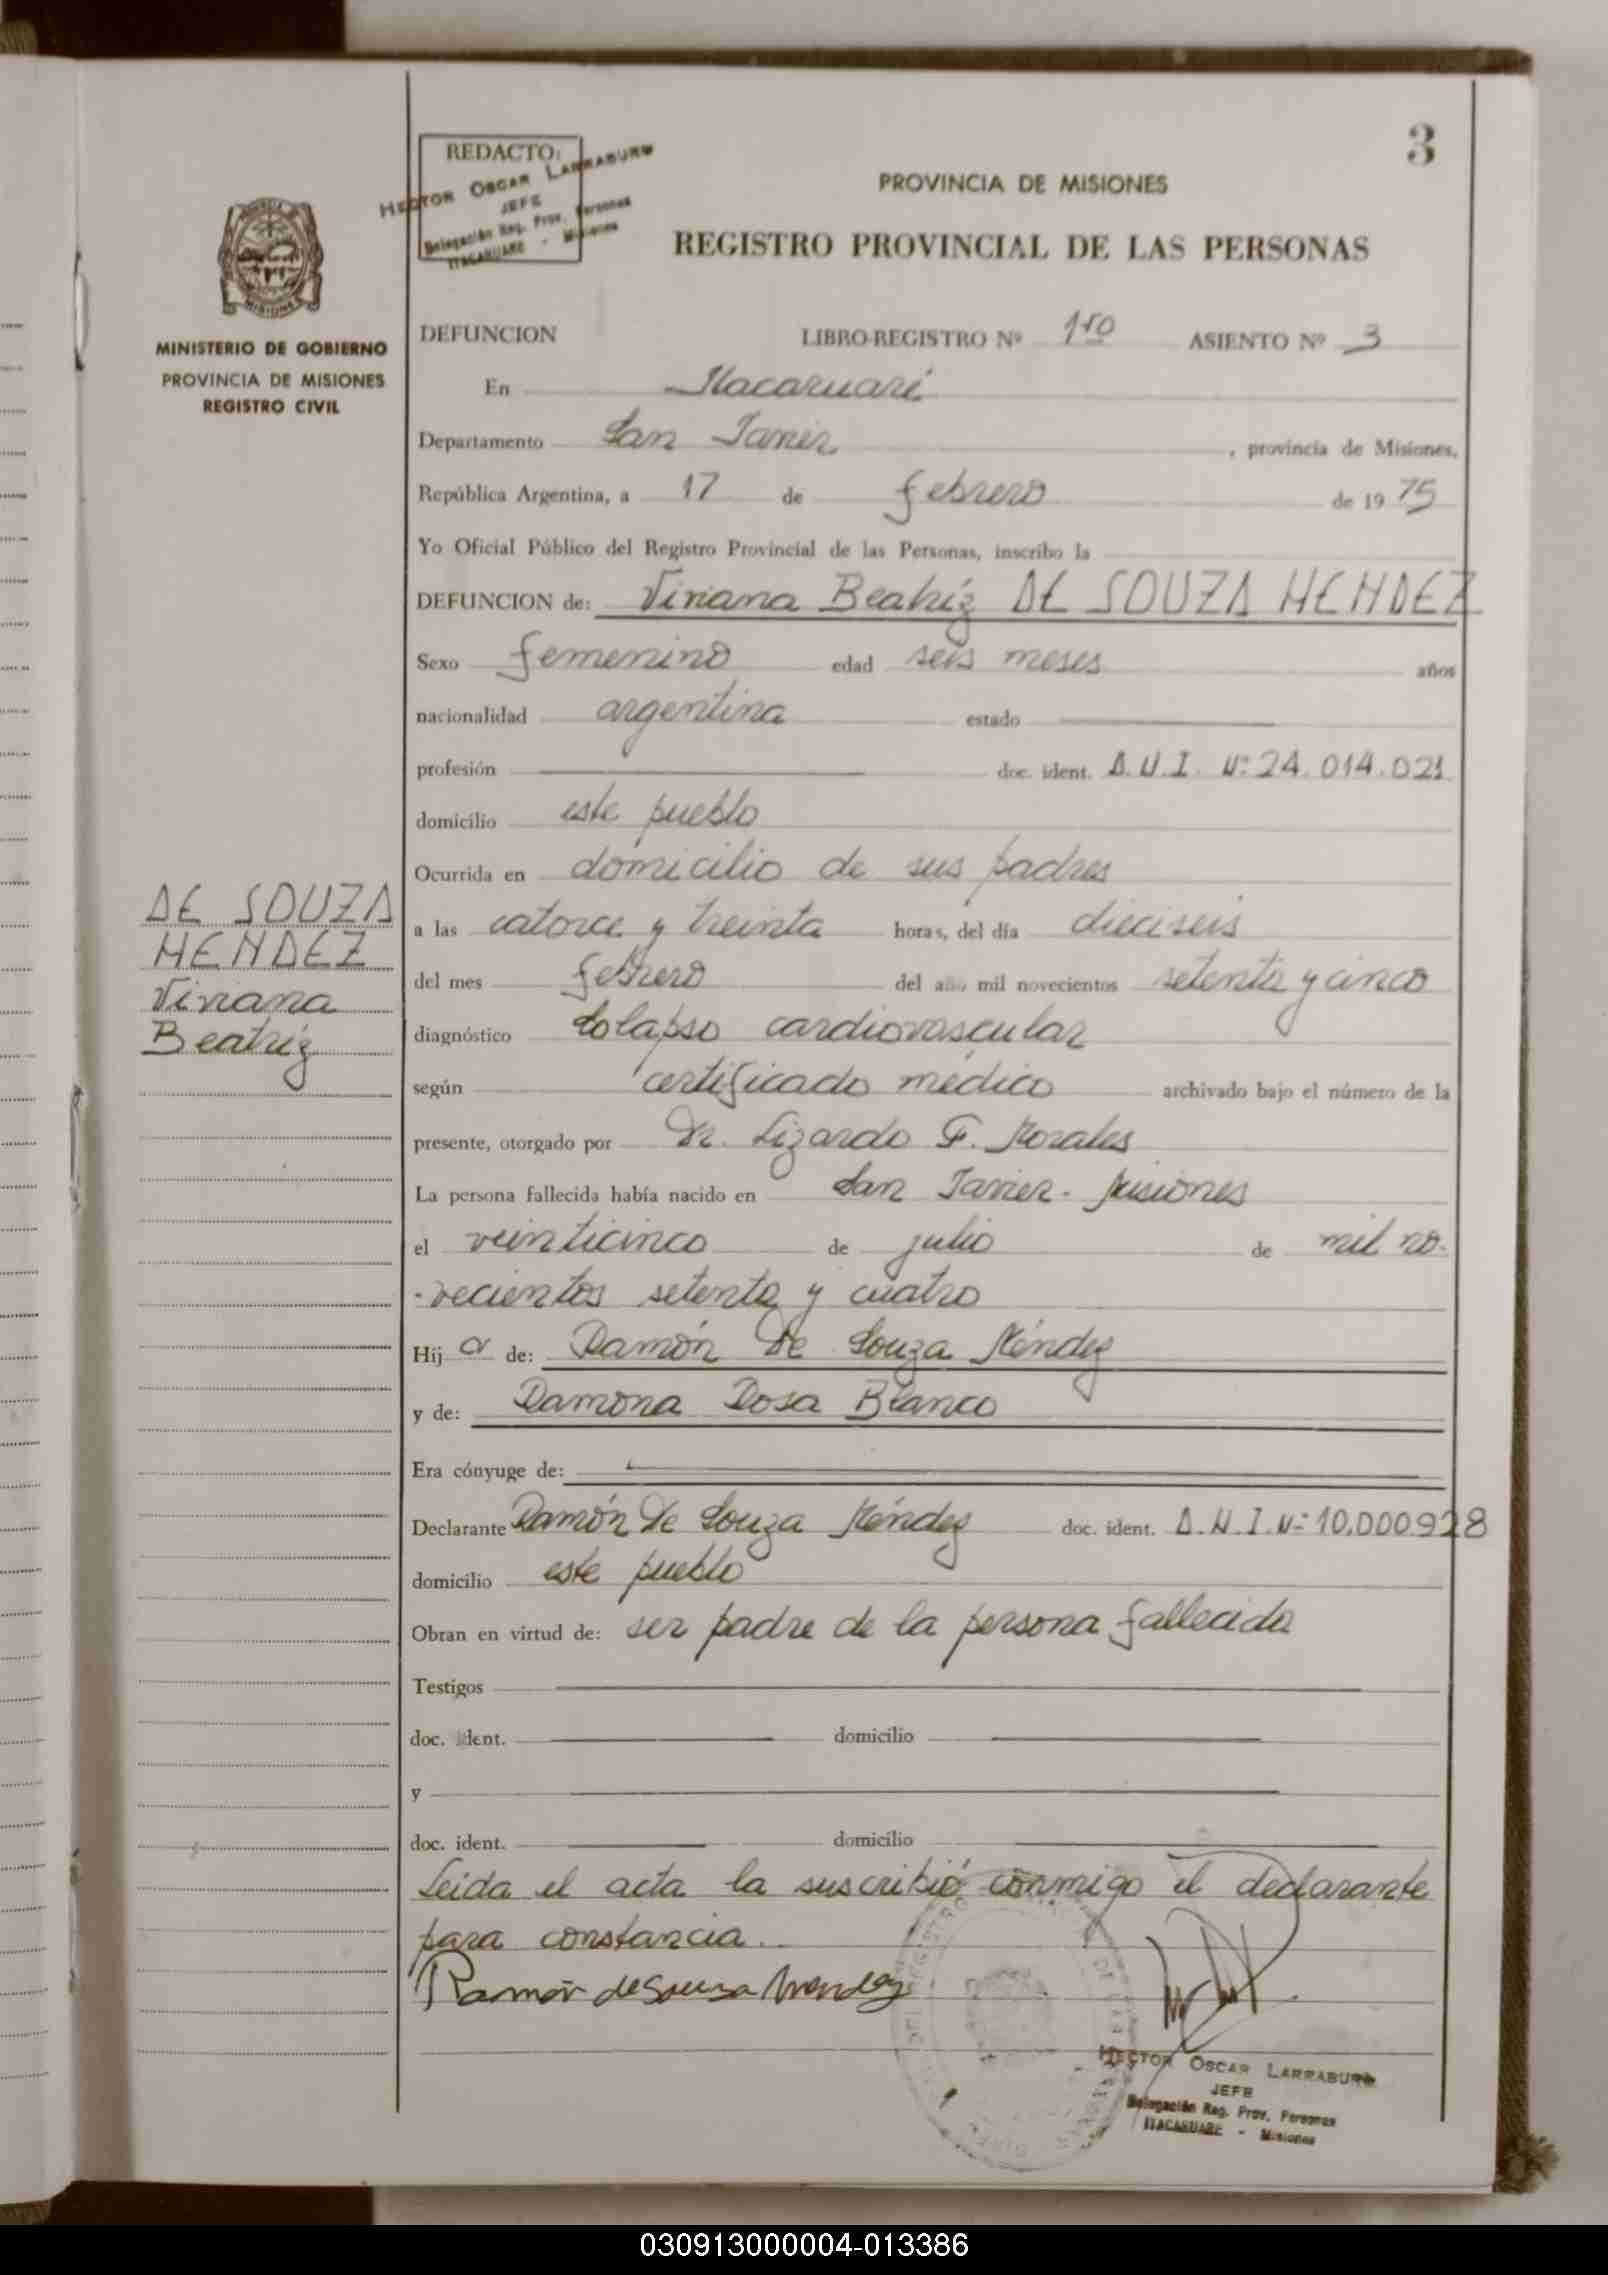 3
REDACTO:
HECTOR OSCAR LARRABURU
JEFE
Delegación Reg. Prov. Personas
ITACARUARE - Misiones
PROVINCIA DE MISIONES
REGISTRO PROVINCIAL DE LAS PERSONAS
MINISTERIO DE GOBIERNO
PROVINCIA DE MISIONES
REGISTRO CIVIL
DE SOUZA
MENDEZ
Viviana
Beatríz
DEFUNCION LIBRO-REGISTRO Nº 150 ASIENTO Nº 3
En Itacaruaré
Departamento San Javier, provincia de Misiones,
República Argentina, a 17 de febrero de 1975
Yo Oficial Público del Registro Provincial de las Personas, inscribo la
DEFUNCION de: Viviana Beatríz DE SOUZA MENDEZ
Sexo femenino edad seis meses años
nacionalidad argentina estado
profesión doc. ident. D.N.I. Nº 24.014.021
domicilio este pueblo
Ocurrida en domicilio de sus padres
a las catorce y treinta horas, del día dieciseis
del mes febrero del año mil novecientos setenta y cinco
diagnóstico Colapso cardiovascular
según certificado médico archivado bajo el número de la
presente, otorgado por Dr. Lizardo F. Morales
La persona fallecida había nacido en San Javier - Misiones
el veinticinco de julio de mil no-
-vecientos setenta y cuatro
Hija de: Ramón De Souza Méndez
y de: Ramona Rosa Blanco
Era cónyuge de:
Declarante Ramón De Souza Méndez doc. ident. D.N.I. Nº 10.000928
domicilio este pueblo
Obran en virtud de: ser padre de la persona fallecida
Testigos
doc. ident. domicilio
y
doc. ident. domicilio
Leida el acta la suscribió conmigo el declarante
para constancia.
Ramón de Souza Mendez
HECTOR OSCAR LARRABURU
JEFE
Delegación Reg. Prov. Personas
ITACARUARE - Misiones
030913000004-013386